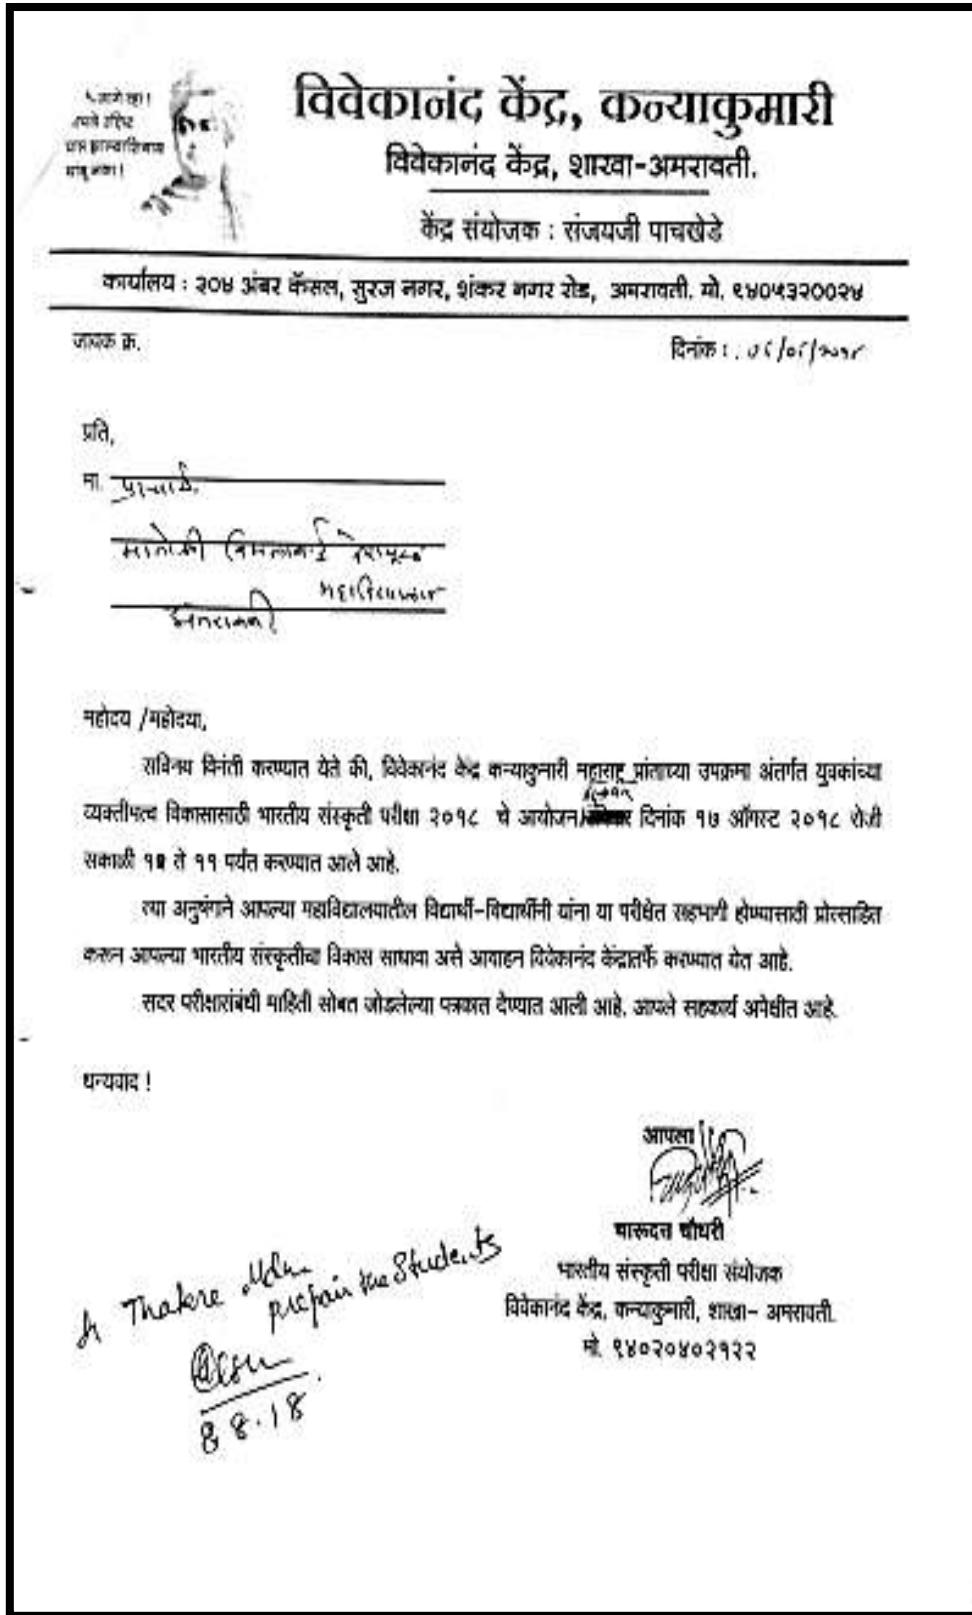 विवेकानंद केंद्र, कन्याकुमारी
विवेकानंद केंद्र, शाखा-अमरावती.
केंद्र संयोजक : संजयजी पाचखेडे
कार्यालय : २०४ अंबर कॅसल, सुरज नगर, शंकर नगर रोड, अमरावती. मो. ९४०५३२००२४
जावक क्र.
दिनांक :
प्रति,
मा. प्राचार्य
मातोश्री विमलाबाई देशमुख
महाविद्यालय
अमरावती
महोदय /महोदया,
सविनय विनंती करण्यात येते की, विवेकानंद केंद्र कन्याकुमारी महाराष्ट्र प्रांताच्या उपक्रमा अंतर्गत युवकांच्या
व्यक्तीमत्व विकासासाठी भारतीय संस्कृती परीक्षा २०१८ चे आयोजन दिनांक १७ ऑगस्ट २०१८ रोजी
सकाळी ते ११ पर्यंत करण्यात आले आहे.
त्या अनुषंगाने आपल्या महाविद्यालयातील विद्यार्थी-विद्यार्थीनी यांना या परीक्षेत सहभागी होण्यासाठी प्रोत्साहित
करून आपल्या भारतीय संस्कृतीचा विकास साधावा असे आवाहन विवेकानंद केंद्रातर्फे करण्यात येत आहे.
सदर परीक्षासंबंधी माहिती सोबत जोडलेल्या पत्रकात देण्यात आली आहे. आपले सहकार्य अपेक्षीत आहे.
धन्यवाद !
आपला
चारूदत्त चौधरी
भारतीय संस्कृती परीक्षा संयोजक
विवेकानंद केंद्र, कन्याकुमारी, शाखा- अमरावती.
मो. ९४०२०४०२१२२
Thakre Mdm
prepair the Students
8 8.18